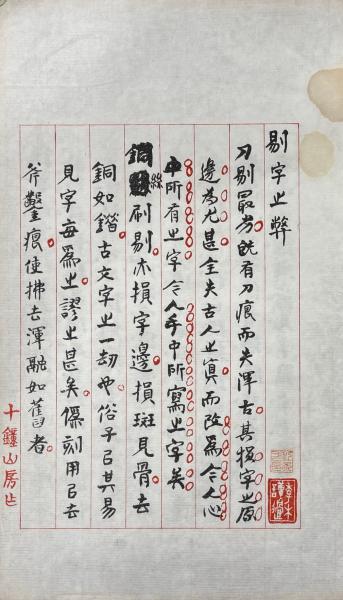 剔字之弊
刀剔最劣既有刀痕而失渾古其損字之原
邊為尤甚全失古人之真而改為今人心
中所有之字今人手中所寫之字矣
銅絲刷剔亦損字邊損斑見骨去
銅如古文字之一劫也俗子以其易
見字每為之謬之甚矣偽刻用以去
斧鑿痕使拂去渾融如舊者
十鐘山房